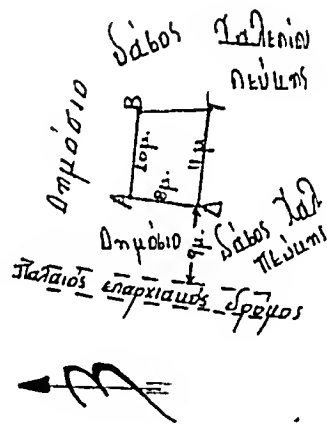 δάσος Χαλεπίου
πεύκης
Δημόσιο
Β Γ
10μ.
11μ
8μ.
Α Δ
Δημόσιο
9μ.
δάσος Χαλ
πεύκης
Παλαιός επαρχιακός δρόμος